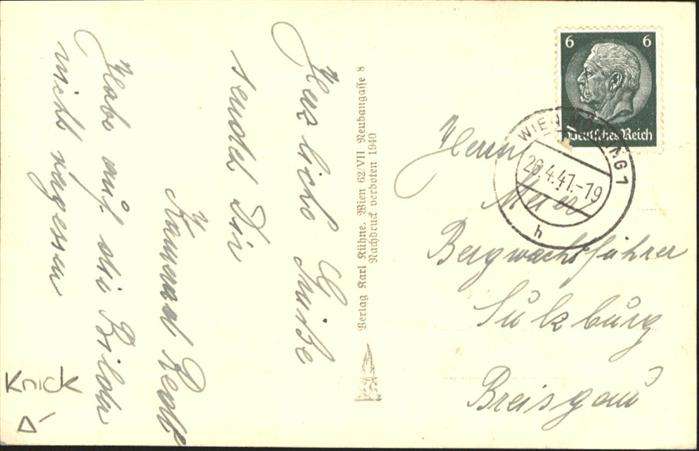 Herzliche Grüße
sendet Dir
Kamerad
Habe auf die Bilder
nicht vergessen
Verlag Karl Kühne, Wien 62/VII Neubaugasse 8
Nachdruck verboten 1940
6 6
Deutsches Reich
WIEN
26.4.41.-19
h
Herrn
Bergwachtführer
Sulzburg
Breisgau
Knick